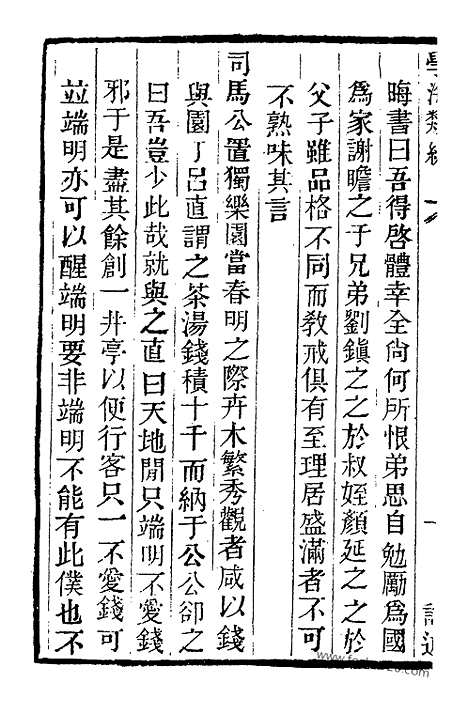 學海類編
晦書曰吾得啓體幸全尙何所恨弟思自勉勵爲國
爲家謝瞻之于兄弟劉鎭之之於叔姪顏延之之於
父子雖品格不同而敎戒俱有至理居盛滿者不可
不熟味其言
司馬公置獨樂園當春明之際卉木繁秀觀者咸以錢
與園丁呂直謂之茶湯錢積十千而納于公公卻之
曰吾豈少此哉就與之直曰天地閒只端明不愛錢
邪于是盡其餘創一井亭以便行客只一不愛錢可
竝端明亦可以醒端明要非端明不能有此僕也不